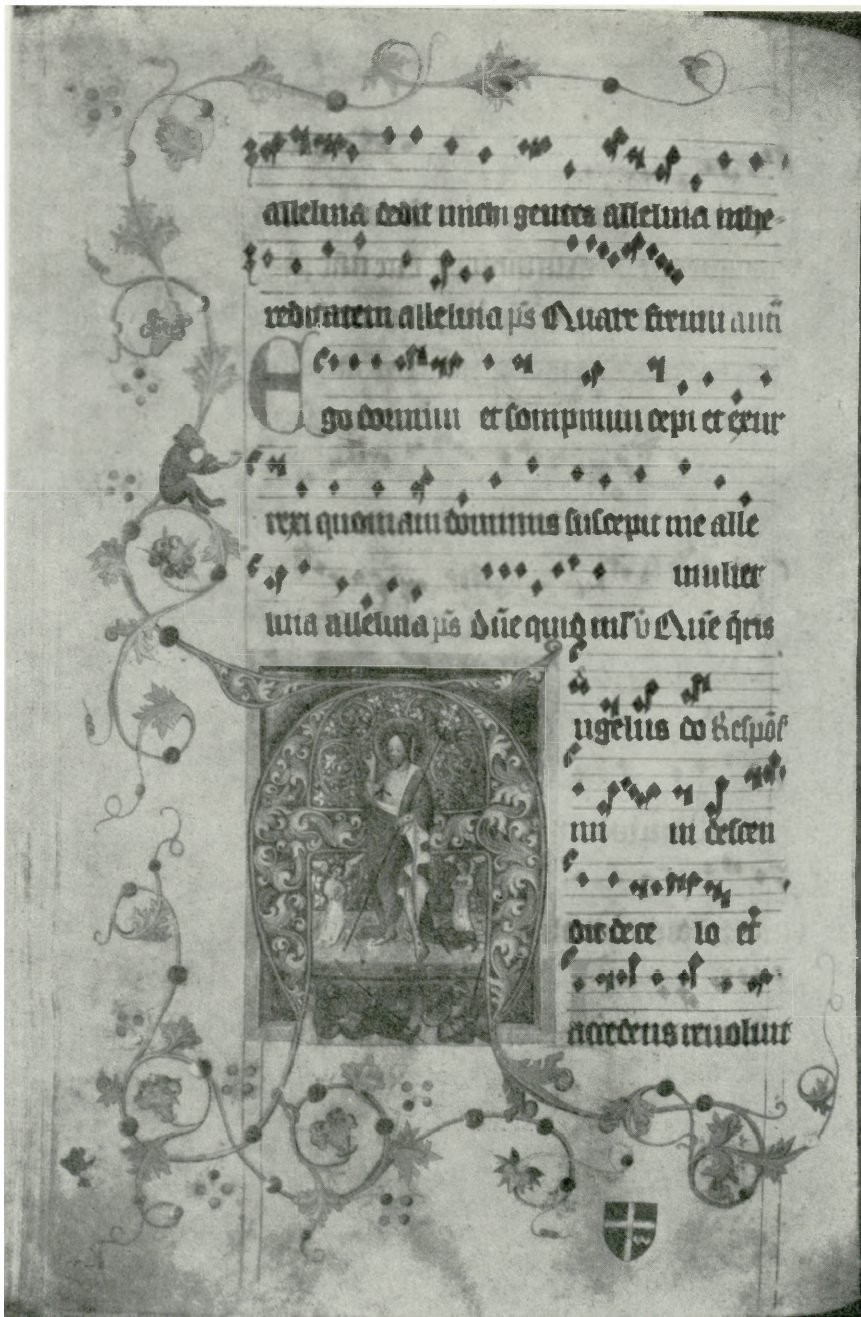 alleluia dedit michi gentes alleluia inhe-
reditatem alleluia ps Quare fremu anti
Ego dormiui et sompnum cepi et exur
rexi quoniam dominus suscepit me alle
mulier
luia alleluia ps Dn̄e quid ml̄ v̇ Que q̄ris
Angelus do Respōs
mi ni descen
dit de ce lo et
accedens reuoluit